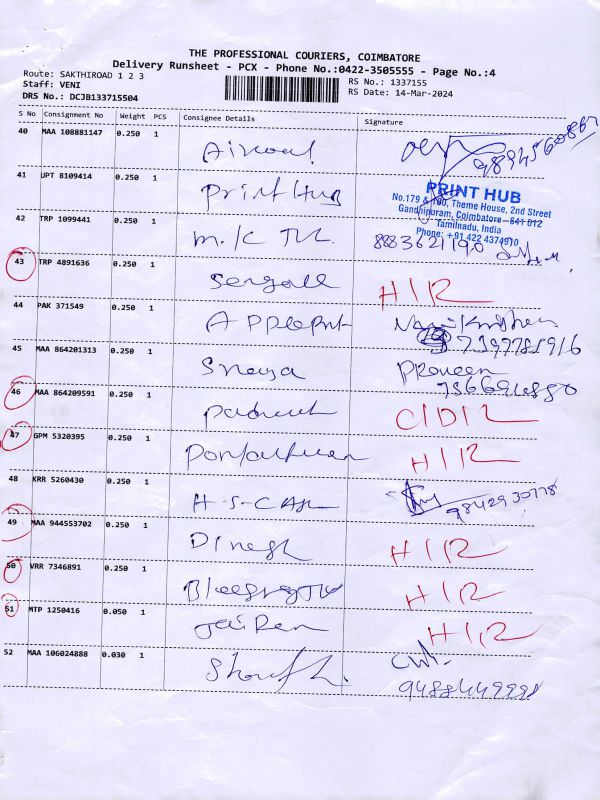 THE PROFESSIONAL COURIERS, COIMBATORE
Delivery Runsheet - PCX - Phone No.:0422-3505555 - Page No.:4
Route: SAKTHIROAD 1 2 3
RS No.: 1337155
Staff: VENI
RS Date: 14-Mar-2024
DRS No.: DCJB133715504
S No Consignment No Weight PCS Consignee Details Signature
40 MAA 108881147 0.250 1
41 UPT 8109414 0.250 1 Print Hub
PRINT HUB
No.179 & 180, Theme House, 2nd Street
Gandhipuram, Coimbatore - 641 012
Tamilnadu, India
Phone: +91 422 4374910
42 TRP 1099441 0.250 1 8883621190
43 TRP 4891636 0.250 1 H/R
44 PAK 371549 0.250 1
45 MAA 864201313 0.250 1 Sneya Praveen
46 MAA 864209591 0.250 1 C/D/R
47 GPM 5320395 0.250 1 H/R
48 KRR 5260430 0.250 1
49 MAA 944553702 0.250 1 Dinesh H/R
50 VRR 7346891 0.250 1 H/R
51 MTP 1250416 0.050 1 H/R
52 MAA 106024888 0.030 1